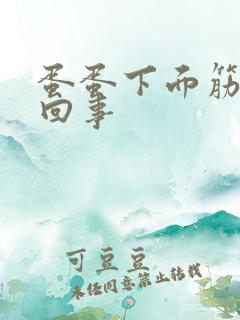 蛋蛋下面筋
回事
可豆豆
未经同意禁止转载